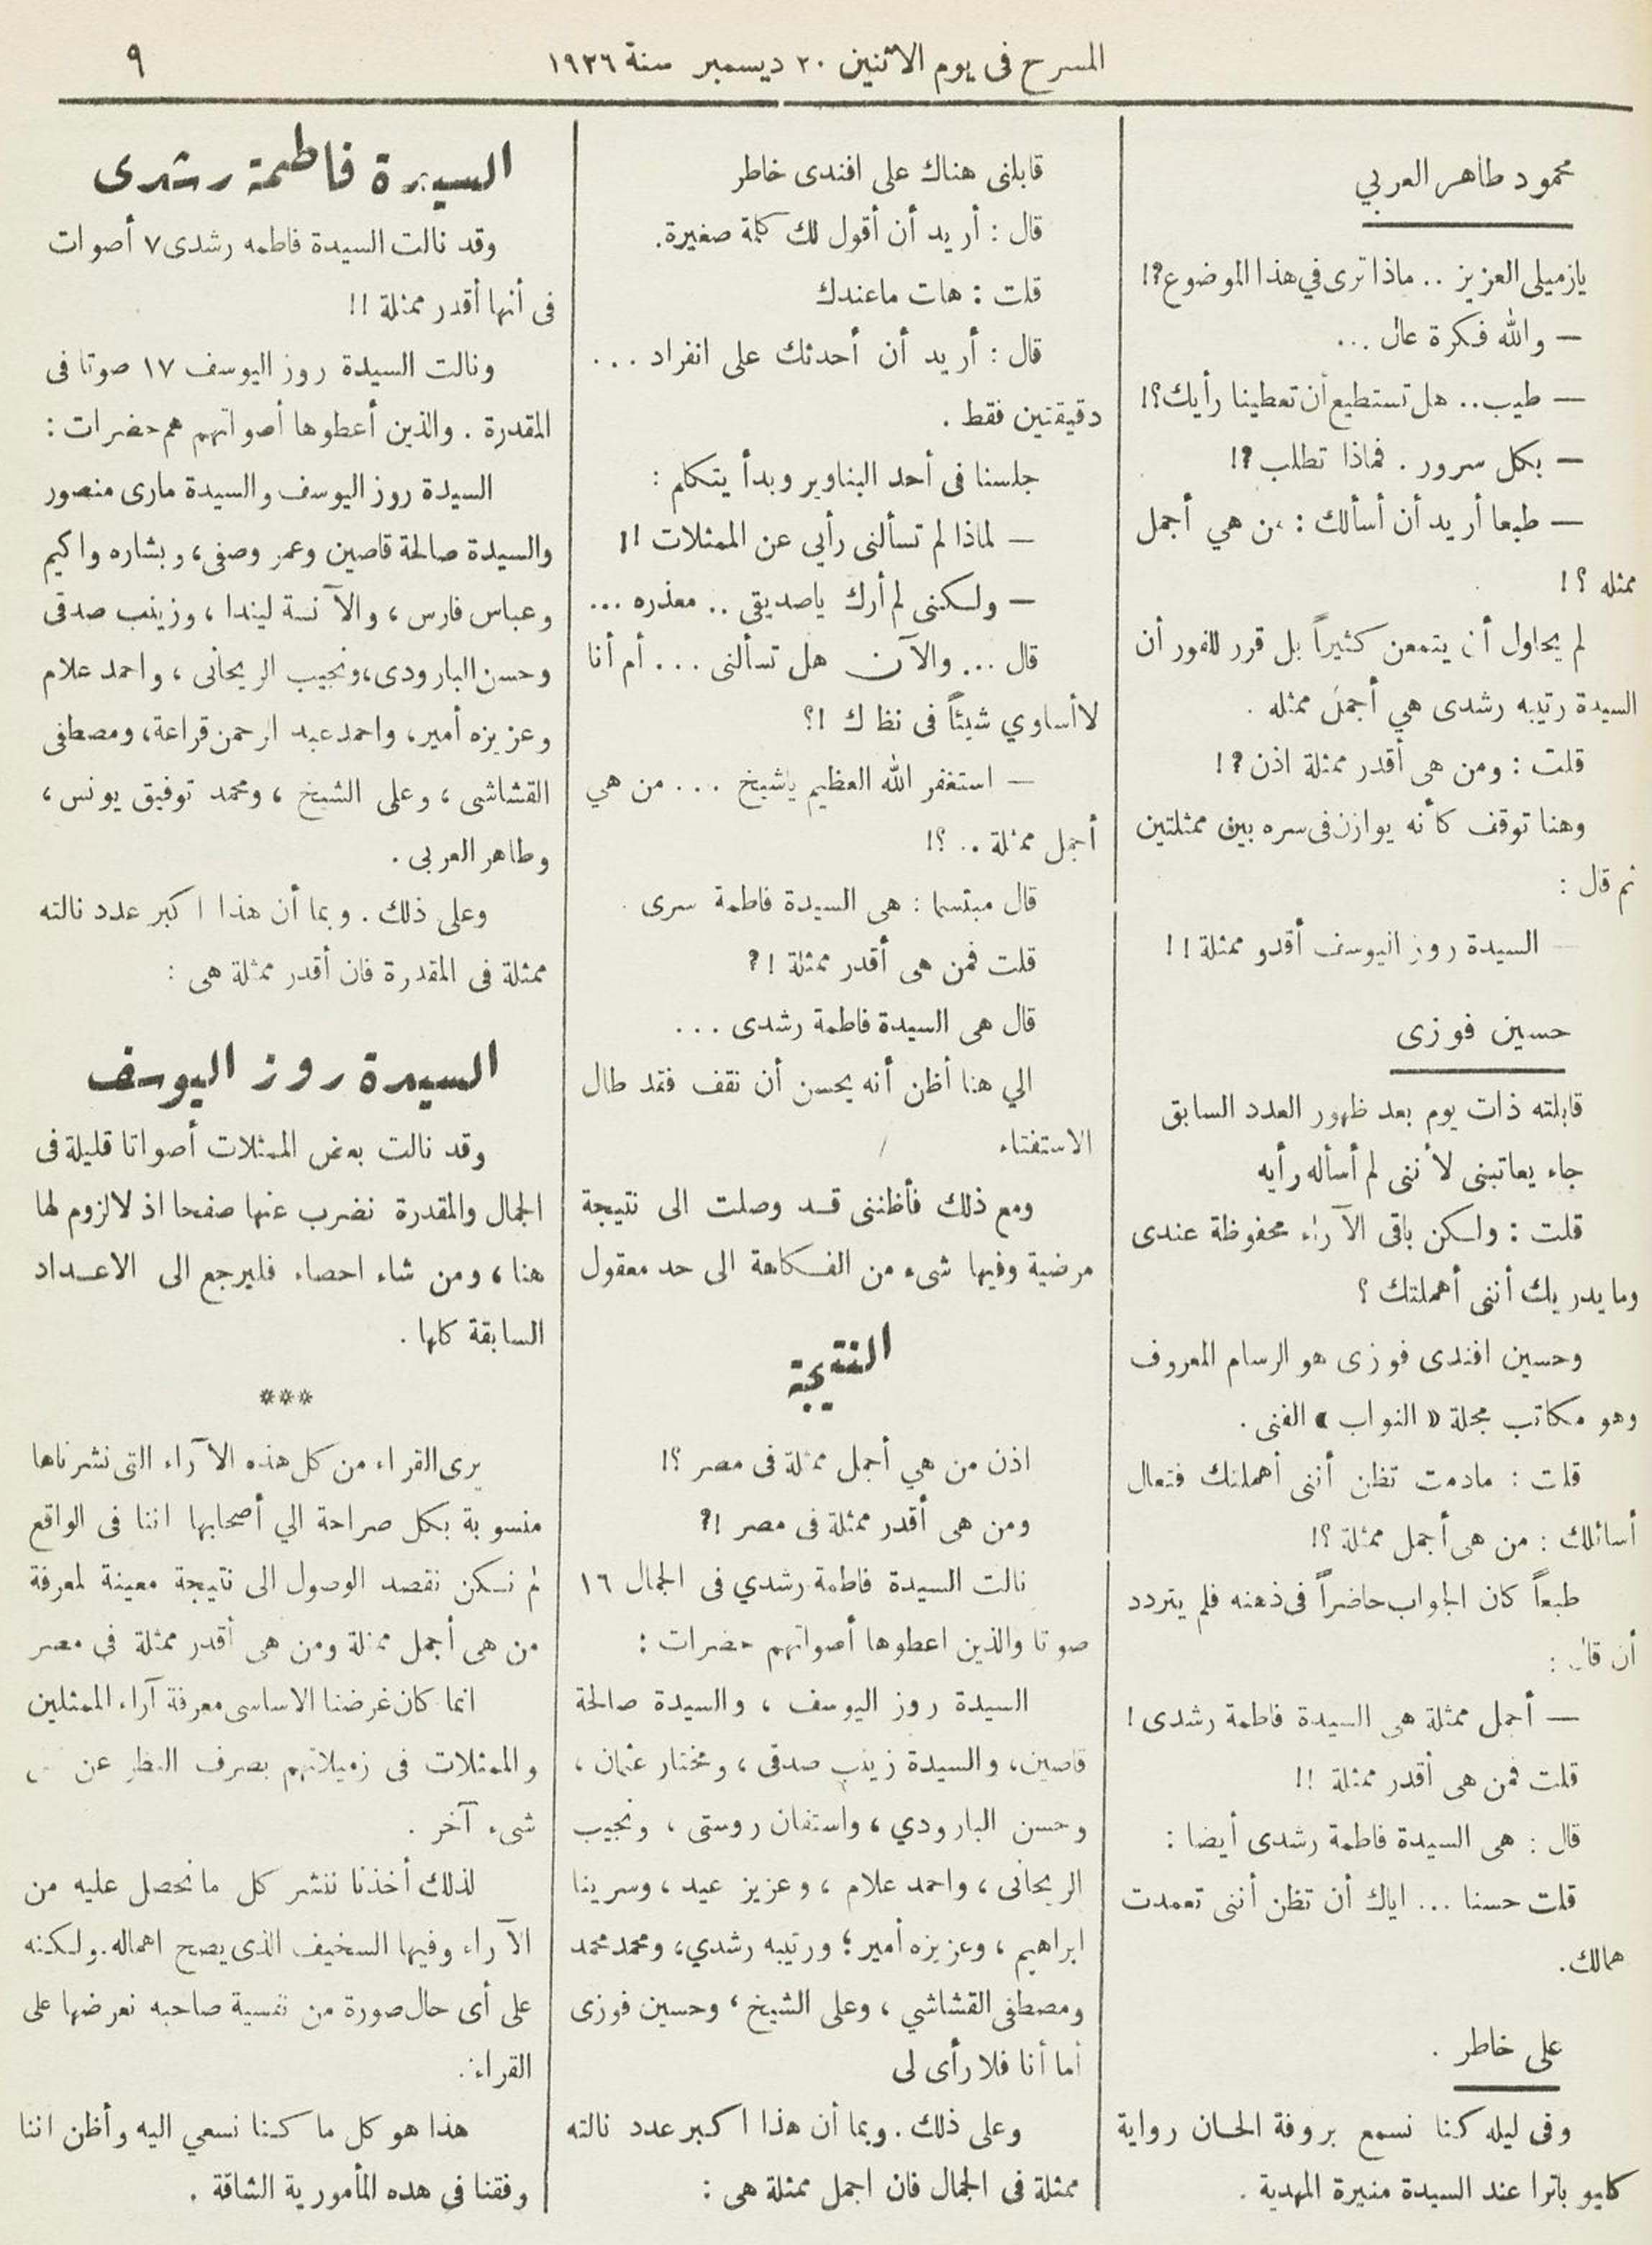 المسرح فى يوم الاثنين ٢٠ ديسمبر سنة ١٩٢٦
٩
محمود طاهر العربي
يازميلى العزيز .. ماذا ترى في هذا الموضوع ؟!
— والله فكرة عال ...
— طيب .. هل تستطيع أن تعطينا رأيك ؟!
— بكل سرور . فماذا تطلب ؟!
— طبعا أريد أن أسألك : من هي أجمل
ممثله ؟ !
لم يحاول أن يتمعن كثيراً بل قرر للفور أن
السيدة رتيبه رشدى هي أجمل ممثله .
قلت : ومن هى أقدر ممثلة اذن ؟ !
وهنا توقف كأنه يوازن فى سره بين ممثلتين
ثم قال :
— السيدة روز اليوسف أقدو ممثلة ! !
حسين فوزى
قابلته ذات يوم بعد ظهور العدد السابق
جاء يعاتبنى لأننى لم أسأله رأيه
قلت : ولكن باقى الآراء محفوظة عندى
وما يدريك أننى أهملتك ؟
وحسين افندى فوزى هو الرسام المعروف
وهو مكاتب مجلة « النواب » الفنى .
قلت : مادمت تظن أننى أهملتك فتعال
أسائلك : من هى أجمل ممثلة ؟!
طبعاً كان الجواب حاضراً فى ذهنه فلم يتردد
أن قال :
— أجمل ممثلة هى السيدة فاطمة رشدى !
قلت فمن هى أقدر ممثلة !!
قال : هى السيدة فاطمة رشدى أيضا :
قلت حسنا ... اياك أن تظن أننى تعمدت
همالك .
على خاطر .
وفى ليله كنا نسمع بروفة الحان رواية
كليو باترا عند السيدة منيرة المهدية .
قابلنى هناك على افندى خاطر
قال : أريد أن أقول لك كلمة صغيرة .
قلت : هات ماعندك
قال : أريد أن أحدثك على انفراد ...
دقيقتين فقط .
جلسنا فى أحد البناوير وبدأ يتكلم :
— لماذا لم تسألنى رأيي عن الممثلات !!
— ولكننى لم أرك ياصديقى .. معذره ...
قال ... والآن هل تسألنى ... أم أنا
لاأساوي شيئاً فى نظ ك !؟
— استغفر الله العظيم ياشيخ ... من هي
أجمل ممثلة .. ؟!
قال مبتسما : هى السيدة فاطمة سرى .
قلت فمن هى أقدر ممثلة !؟
قال هى السيدة فاطمة رشدى ...
الي هنا أظن أنه يحسن أن نقف فقد طال
الاستفتاء
ومع ذلك فأظننى قد وصلت الى نتيجة
مرضية وفيها شىء من الفكاهة الى حد معقول
النتيجة
اذن من هي أجمل ممثلة فى مصر ؟!
ومن هى أقدر ممثلة فى مصر !؟
نالت السيدة فاطمة رشدي فى الجمال ١٦
صوتا والذين اعطوها أصواتهم حضرات :
السيدة روز اليوسف ، والسيدة صالحة
قاصين، والسيدة زينب صدقى ، ومختار عثمان ،
وحسن البارودي ، واستفان روستى ، ونجيب
الريحانى ، واحمد علام ، وعزيز عيد ، وسرينا
ابراهيم ، وعزيزه أمير ؛ ورتيبه رشدي، ومحمد محمد
ومصطفى القشاشي ، وعلى الشيخ ، وحسين فوزى
أما أنا فلا رأى لى
وعلى ذلك . وبما أن هذا اكبر عدد نالته
ممثلة فى الجمال فان اجمل ممثلة هى :
السيدة فاطمة رشدى
وقد نالت السيدة فاطمه رشدى ٧ أصوات
فى أنها أقدر ممثلة !!
ونالت السيدة روز اليوسف ١٧ صوتا فى
المقدرة . والذين أعطوها أصواتهم هم حضرات :
السيدة روز اليوسف والسيدة مارى منصور
والسيدة صالحة قاصين وعمر وصفى، وبشاره واكيم
وعباس فارس ، والآنسة ليندا ، وزينب صدقى
وحسن البارودى، ونجيب الريحانى ، واحمد علام
وعزيزه أمير، واحمد عبد الرحمن قراعة، ومصطفى
القشاشى ، وعلى الشيخ ، ومحمد توفيق يونس ،
وطاهر العربى .
وعلى ذلك . وبما أن هذا اكبر عدد نالته
ممثلة فى المقدرة فان أقدر ممثلة هى :
السيدة روز اليوسف
وقد نالت بعض الممثلات أصواتا قليلة فى
الجمال والمقدرة نضرب عنها صفحا اذ لالزوم لها
هنا ، ومن شاء احصاء فليرجع الى الاعداد
السابقة كلها .
***
يرى القراء من كل هذه الآراء التى نشرناها
منسوبة بكل صراحة الي أصحابها اننا فى الواقع
لم نكن نقصد الوصول الى نتيجة معينة لمعرفة
من هى أجمل ممثلة ومن هى أقدر ممثلة فى مصر
انما كان غرضنا الاساسى معرفة آراء الممثلين
والممثلات فى زميلاتهم بصرف النظر عن
شىء آخر .
لذلك أخذنا ننشر كل مانحصل عليه من
الآراء وفيها السخيف الذى يصح اهماله. ولكنه
على أى حال صورة من نفسية صاحبه نعرضها على
القراء .
هذا هو كل ما كنا نسعي اليه وأظن اننا
وفقنا فى هده المأمورية الشاقة .